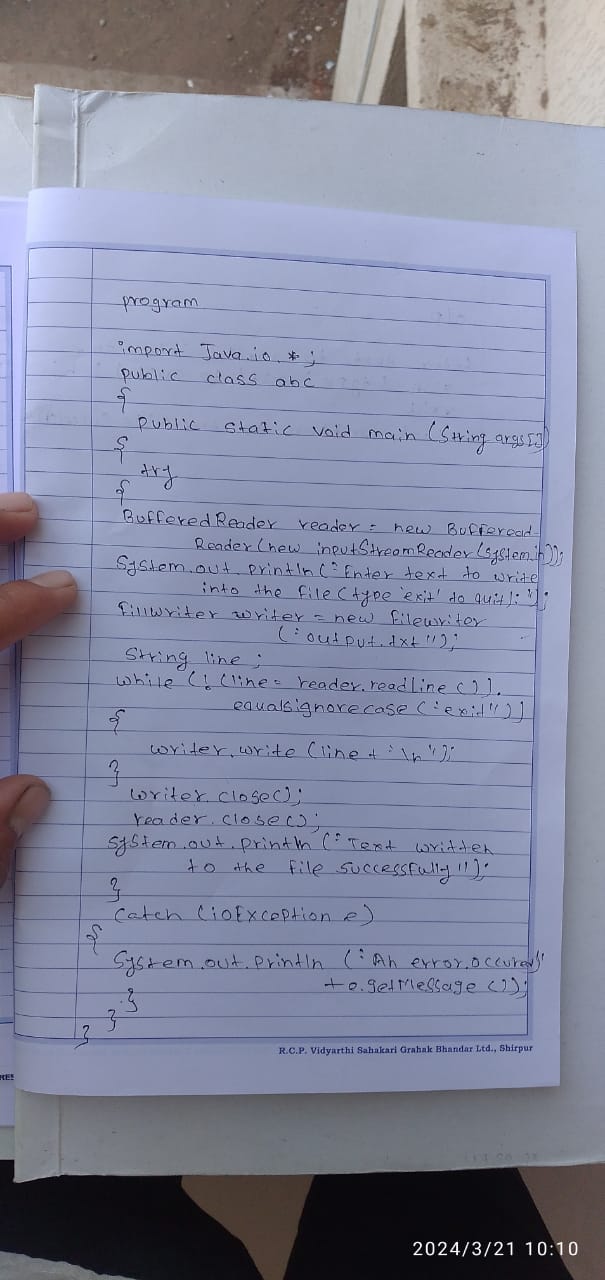 program
import Java.io.*;
public class abc
{
public static void main (String args[])
{
try
{
BufferedReader reader = new Buffered-
Reader (new inputStreamReader (system.in));
System.out.println ("Enter text to write
into the file (type 'exit' to quit): ");
fillwriter writer = new filewriter
("output.txt");
String line;
while (! (line = reader.readline ()).
equalsignorecase ("exit"))
{
writer.write (line + "\n");
}
writer.close();
reader.close();
system.out.println ("Text written
to the file successfully");
}
Catch (ioException e)
{
System.out.println ("An error.occured"
+ o.getMessage ());
}
}
}
R.C.P. Vidyarthi Sahakari Grahak Bhandar Ltd., Shirpur
2024/3/21 10:10